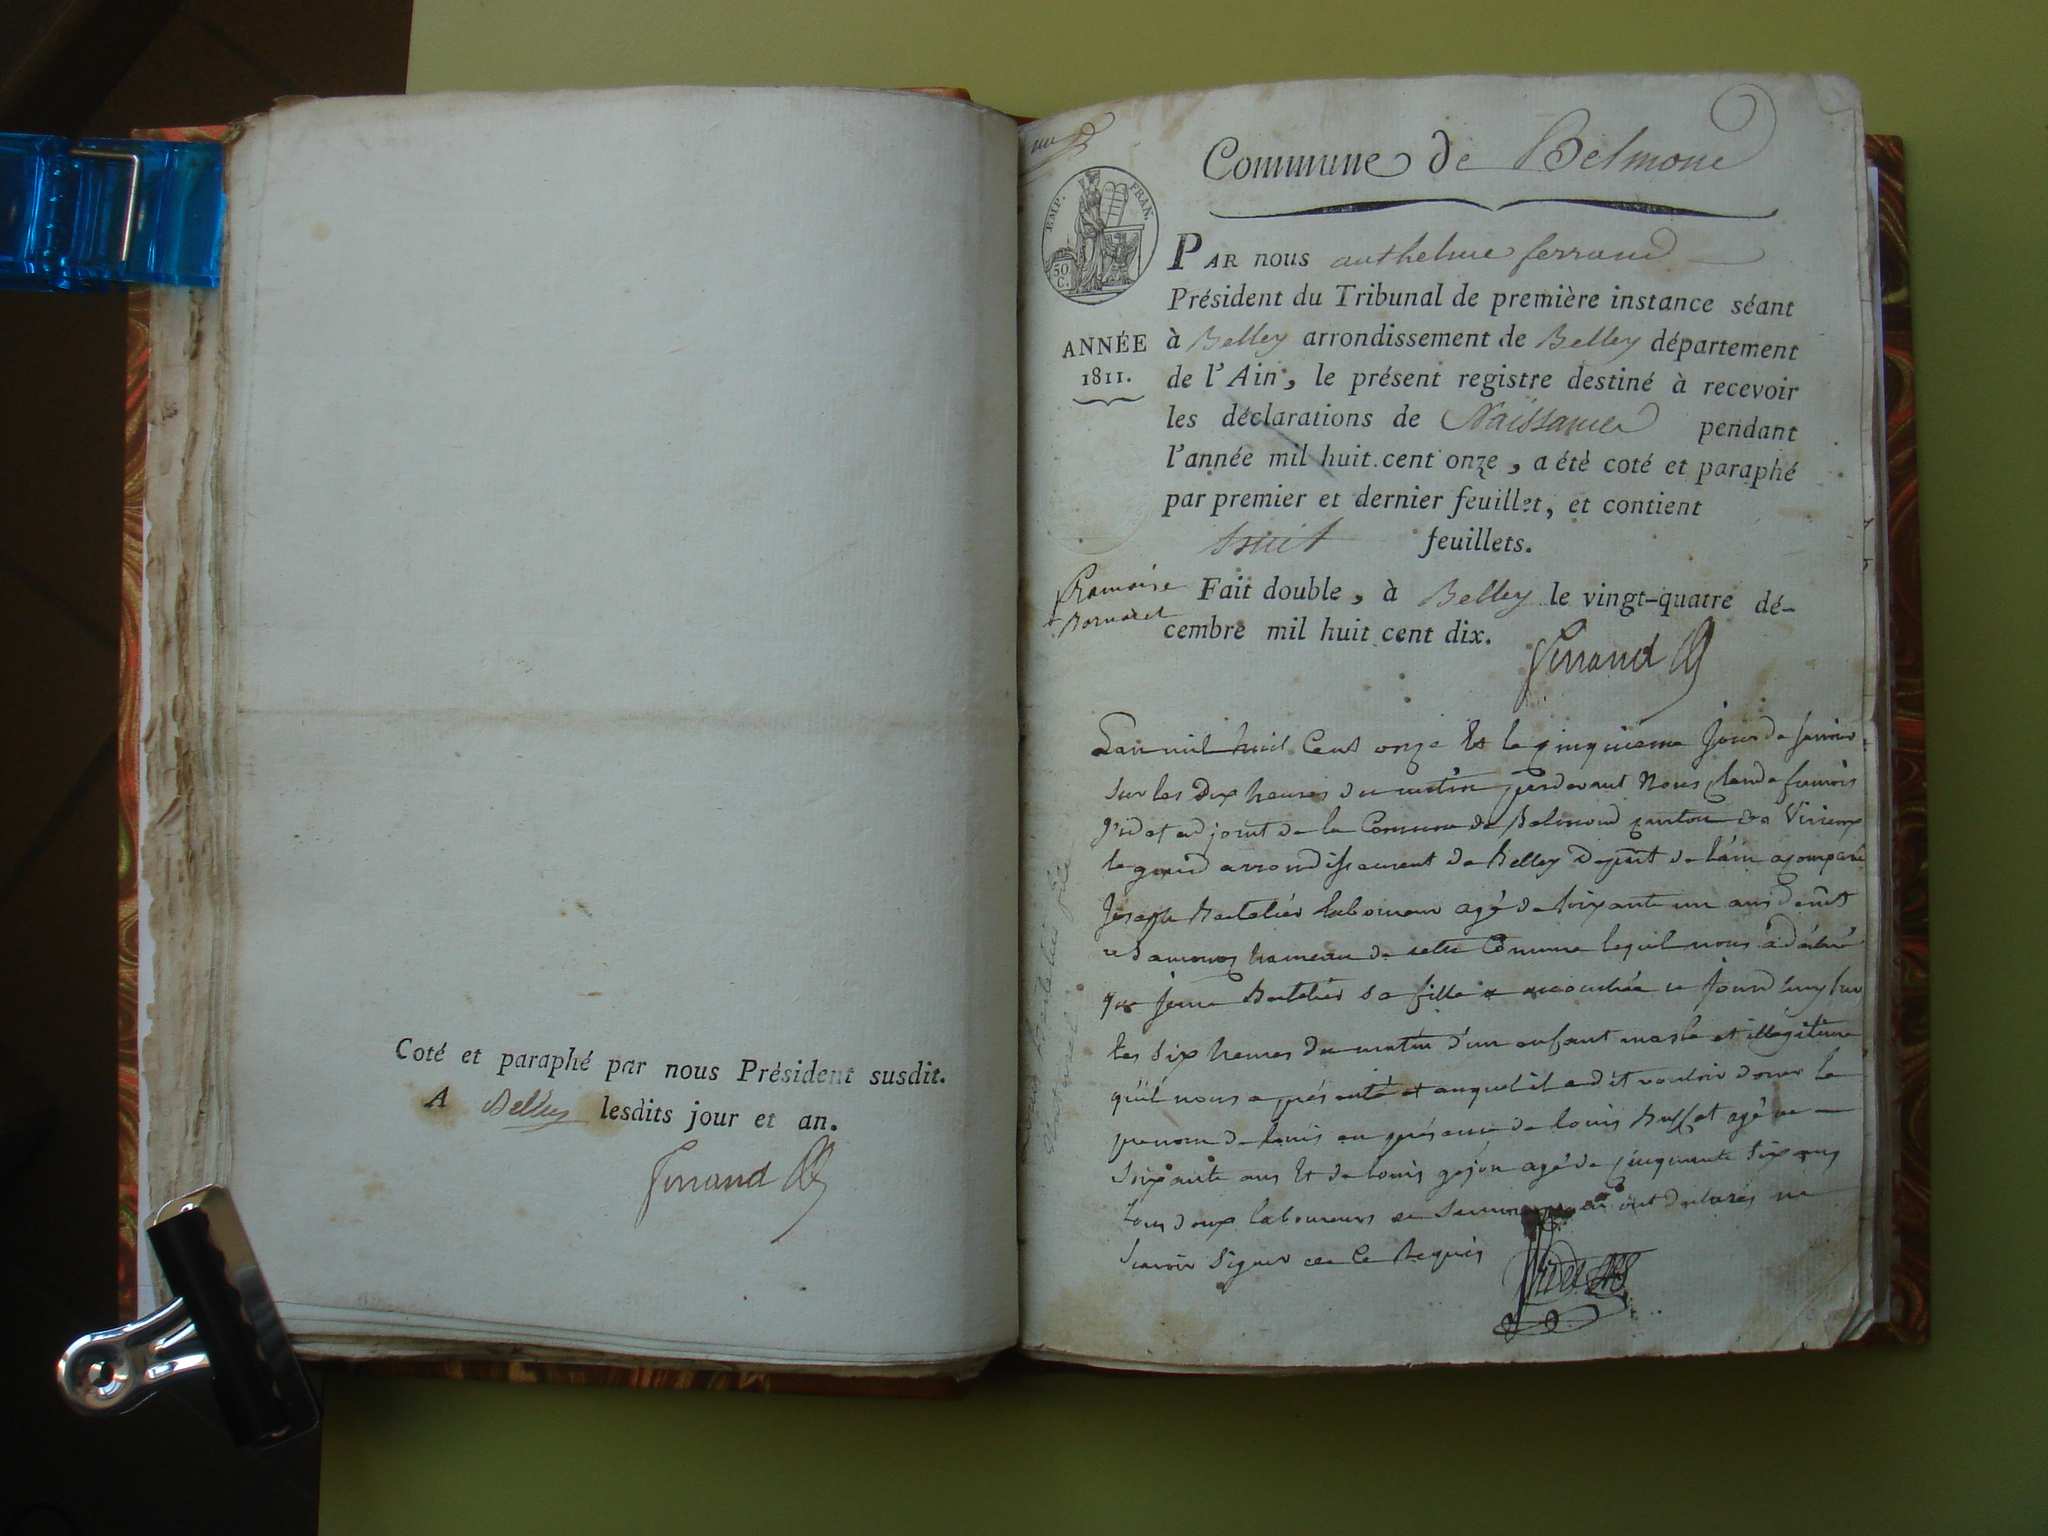 Coté et paraphé par nous Président susdit.
A Belley lesdits jour et an.
Ferrand
EMP. FRAN.
50 C.
ANNÉE
1811.
Commune de Belmont
PAR nous anthelme ferrand
Président du Tribunal de première instance séant
à Belley arrondissement de Belley département
de l'Ain, le présent registre destiné à recevoir
les déclarations de Naissance pendant
l'année mil huit cent onze, a été coté et paraphé
par premier et dernier feuillet, et contient
huit feuillets.
Fait double, à Belley le vingt-quatre dé-
cembre mil huit cent dix.
Ferrand
Lan mil huit Cent onze Et le cinquieme Jour de
sur les Dix heures du matin pardevant Nous
adjoint de la Comune de Belmond canton de Virieux
le grand arrondissement de Belley Depart de lain
Joseph Bertelier laboureur agé de soixante un ans
hameau de cette Comune lequel nous a déclaré
que sa fille accouchée ce Jourd huy sur
les six heures du matin d'un enfant masle et illégitime
qu'il nous a présenté et auquel il a dit vouloir doner le
prenom de louis en présence de louis Buffet agé de
soixante ans Et de louis agé de cinquante six ans
tous deux laboureurs ont declarés ne
scavoir signer de Ce Requis